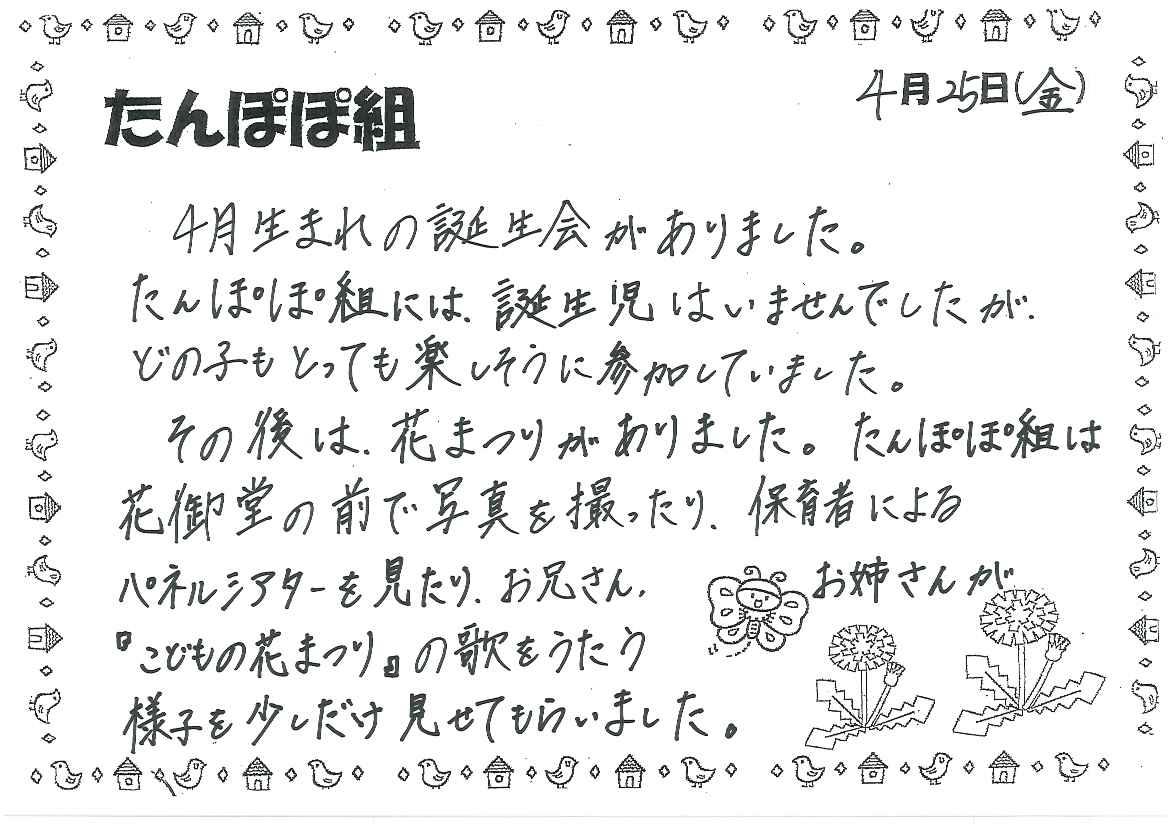 たんぽぽ組
4月25日(金)
4月生まれの誕生会がありました。
たんぽぽ組には、誕生児はいませんでしたが、
どの子もとっても楽しそうに参加していました。
その後は、花まつりがありました。たんぽぽ組は
花御堂の前で写真を撮ったり、保育者による
パネルシアターを見たり、お兄さん、お姉さんが
『こどもの花まつり』の歌をうたう
様子を少しだけ見せてもらいました。